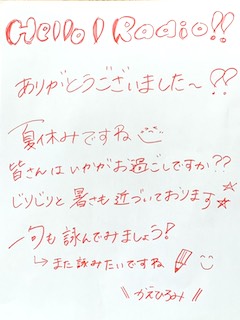 Hello! Radio!!
ありがとうございました〜!?
夏休みですね
皆さんはいかがお過ごしですか??
じりじりと暑さも近づいております☆☆
一句も詠んでみましょう!
↳また詠みたいですね
\\ かえひろみ //